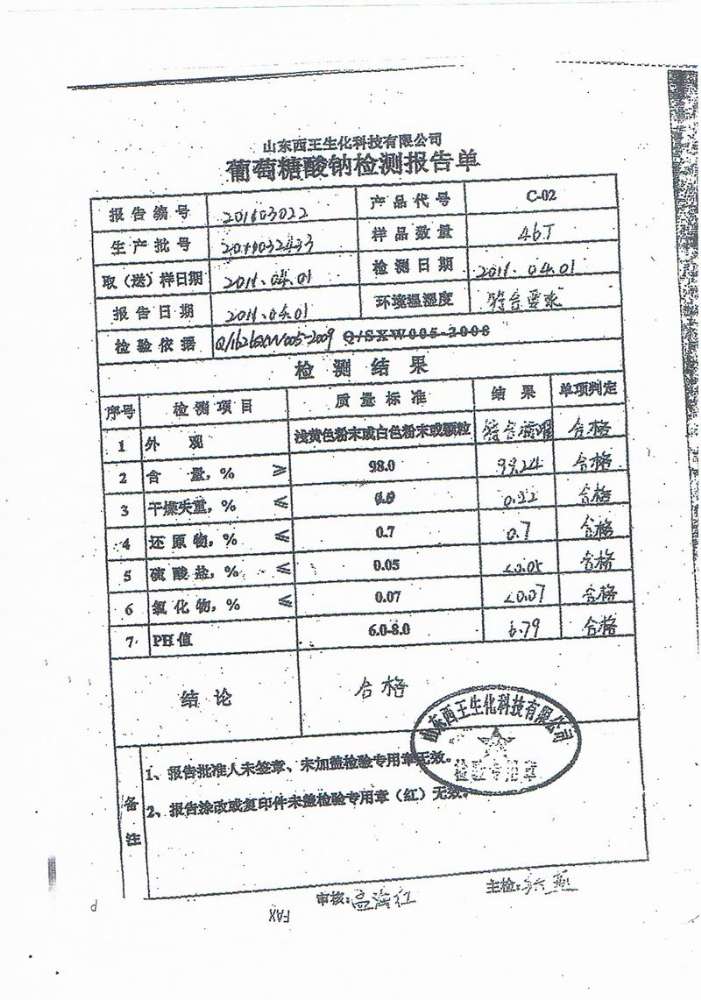 山东西王生化科技有限公司
葡萄糖酸钠检测报告单
报告编号 201603022 产品代号 C-02
生产批号 样品数量 46T
取(送)样日期 2011.04.01 检测日期 2011.04.01
报告日期 2011.04.01 环境温湿度 符合要求
检验依据 Q/SXW005-2008
检测结果
序号 检测项目 质量标准 结果 单项判定
1 外观 浅黄色粉末或白色粉末或颗粒 符合 合格
2 含量,% ≥ 98.0 99.24 合格
3 干燥失重,% ≤ 合格
4 还原物,% ≤ 0.7 0.7 合格
5 硫酸盐,% ≤ 0.05 <0.05 合格
6 氯化物,% ≤ 0.07 <0.07 合格
7 PH值 6.0-8.0 6.79 合格
结论 合格
山东西王生化科技有限公司
检验专用章
备注
1、报告批准人未签章、未加盖检验专用章无效。
2、报告涂改或复印件未盖检验专用章(红)无效。
审核: 主检:
FAX